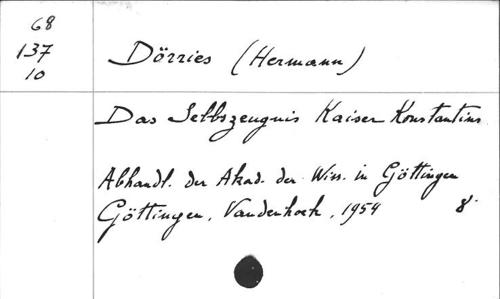 68
137
10
Dörries (Hermann)
Das Selbszeugnis Kaiser Konstantins
Abhandl. der Akad. der Wiss. in Göttingen
Göttingen, Vandenhoek, 1954 8°